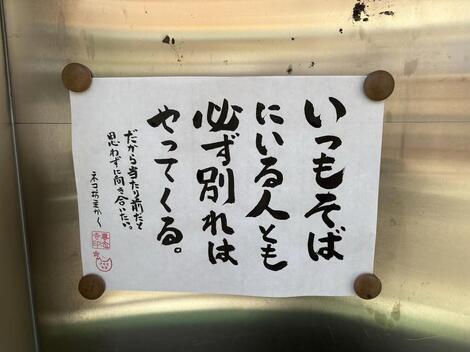 いつもそば
にいる人とも
必ず別れは
やってくる。
だから当たり前だと
思わずに向き合いたい。
ネコ坊主かく